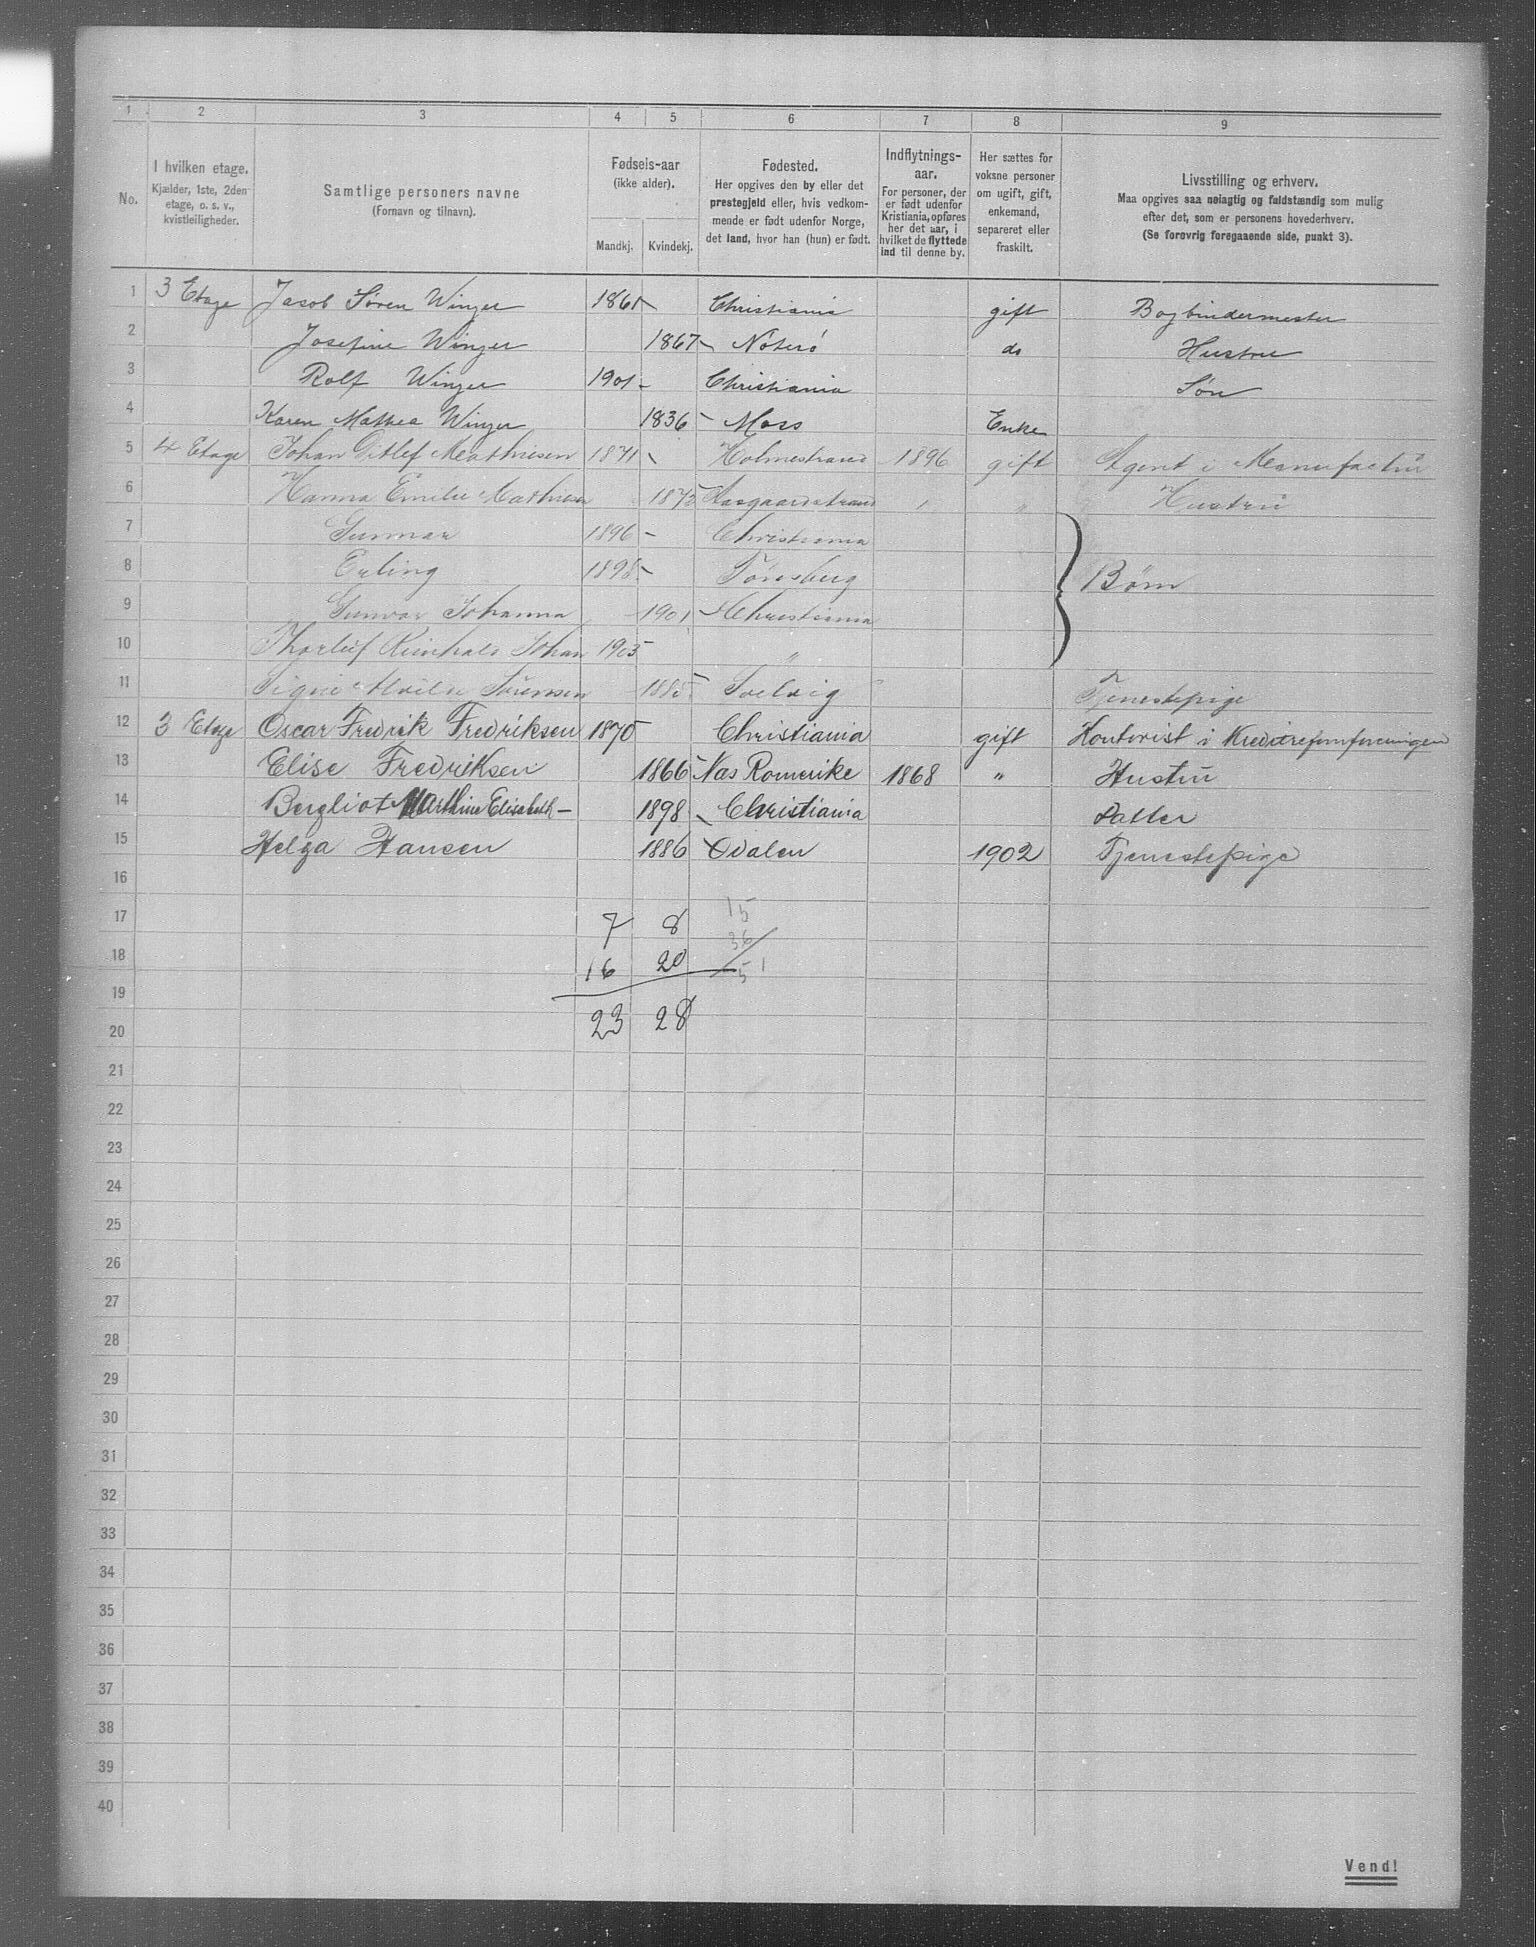 1 2 3 4 5 6 7 8 9
No.
I hvilken etage.
Kjælder, 1ste, 2den
etage, o. s. v.,
kvistleiligheder.
Samtlige personers navne
(Fornavn og tilnavn).
Fødsels-aar
(ikke alder).
Mandkj. Kvindekj.
Fødested.
Her opgives den by eller det
prestegjeld eller, hvis vedkom-
mende er født udenfor Norge,
det land, hvor han (hun) er født.
Indflytnings-
aar.
For personer, der
er født udenfor
Kristiania, opføres
her det aar, i
hvilket de flyttede
ind til denne by.
Her sættes for
voksne personer
om ugift, gift,
enkemand,
separeret eller
fraskilt.
Livsstilling og erhverv.
Maa opgives saa nøiagtig og fuldstændig som mulig
efter det, som er personens hovederhverv.
(Se forøvrig foregaaende side, punkt 3).
1 3 Etage Jacob Søren Winger 1861 Christiania gift Bogbindermester
2 Josefine Winger 1867 Nøterø do Hustru
3 Rolf Winger 1901 Christiania Søn
4 Karen Mathea Winger 1836 Moss Enke
5 4 Etage Johan Ditlef Mathiesen 1871 Holmestrand 1896 gift Agent i Manufactur
6 Hanna Emilie Mathiesen Aasgaardstrand " " Hustru
7 Gunnar 1896 Christiania
8 Erling 1898 Tønsberg Børn
9 Gunvor Johanna 1901 Christiania
10 Thorleif Reinhald Johan 1905 "
11 Signe Sørensen 1885 Selvig Tjenestepige
12 3 Etage Oscar Fredrik Fredriksen 1870 Christiania gift Kontorist i Kreditreformforeningen
13 Elise Fredriksen 1866 Nas Romerike 1868 " Hustru
14 Bergliot Marthine Elisabeth - 1898 Christiania Datter
15 Helga Hansen 1886 Odalen 1902 Tjenestepige
16
17 7 8 15
18 16 20 36
19 51
20 23 28
21
22
23
24
25
26
27
28
29
30
31
32
33
34
35
36
37
38
39
40
Vend!